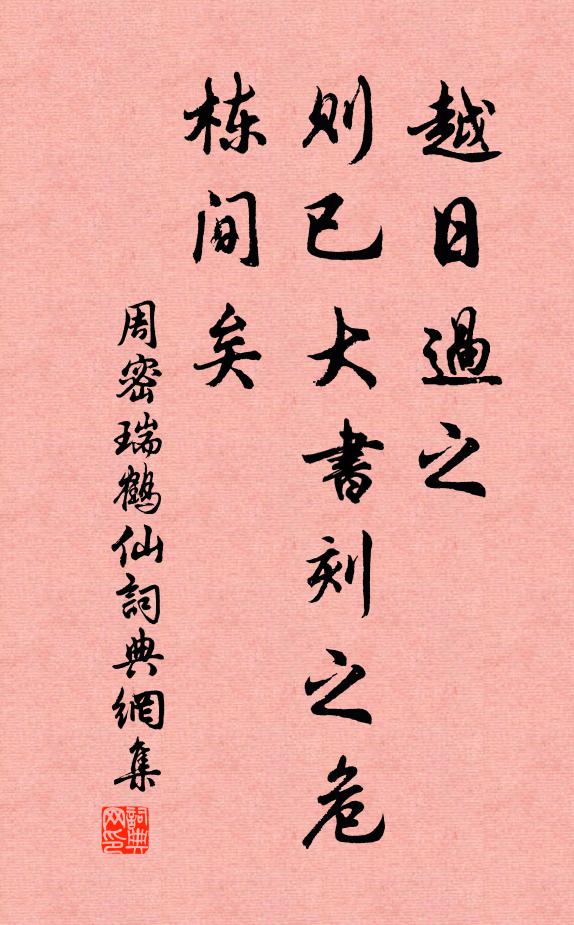 越日過之
則已大書刻之危
栋间矣
周密瑞鶴仙詞典網集
詞典网印